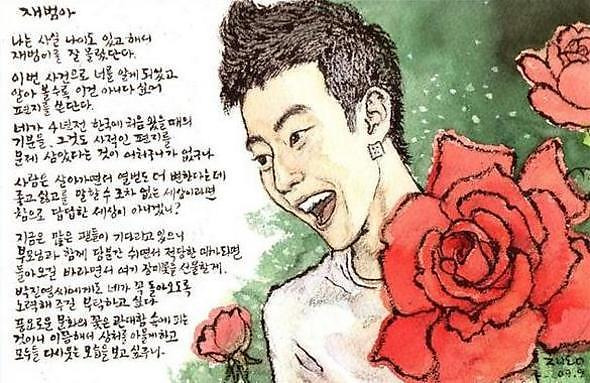 재범아
나는 사실 나이도 있고 해서
재범이를 잘 몰랐단다.
이번 사건으로 너를 알게 되었고
알아 볼수록 이건 아니다 싶어
편지를 쓴단다.
네가 4년전 한국에 처음 왔을 때의
기분을, 그것도 사적인 편지를
문제 삼았다는 것이 어처구니가 없구나
사람은 살아가면서 열번도 더 변한다는데
좋고 싫고를 말할 수 조차 없는 세상이라면
참으로 답답한 세상이 아니겠니?
지금은 많은 팬들이 기다리고 있으니
부모님과 함께 당분간 쉬면서 적당한 때가되면
돌아오길 바라면서 여기 장미꽃을 선물할게.
박진영씨에게도 네가 꼭 돌아오도록
노력해 주길 부탁하고 싶다
풍요로운 문화의 꽃은 관대함 속에 피는
것이니 이쯤해서 상처를 아물게하고
모두들 다시웃는 모습을 보고 싶구나.
09.9